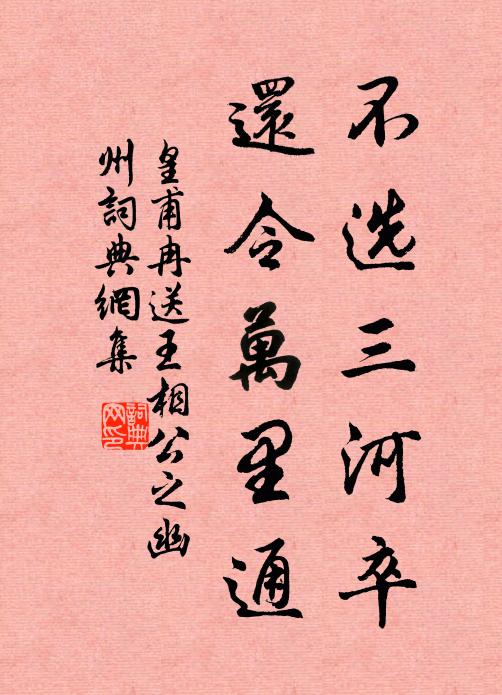 不选三河卒
還令萬里通
皇甫冉送王相公之幽
州詞典網集
詞典
网印